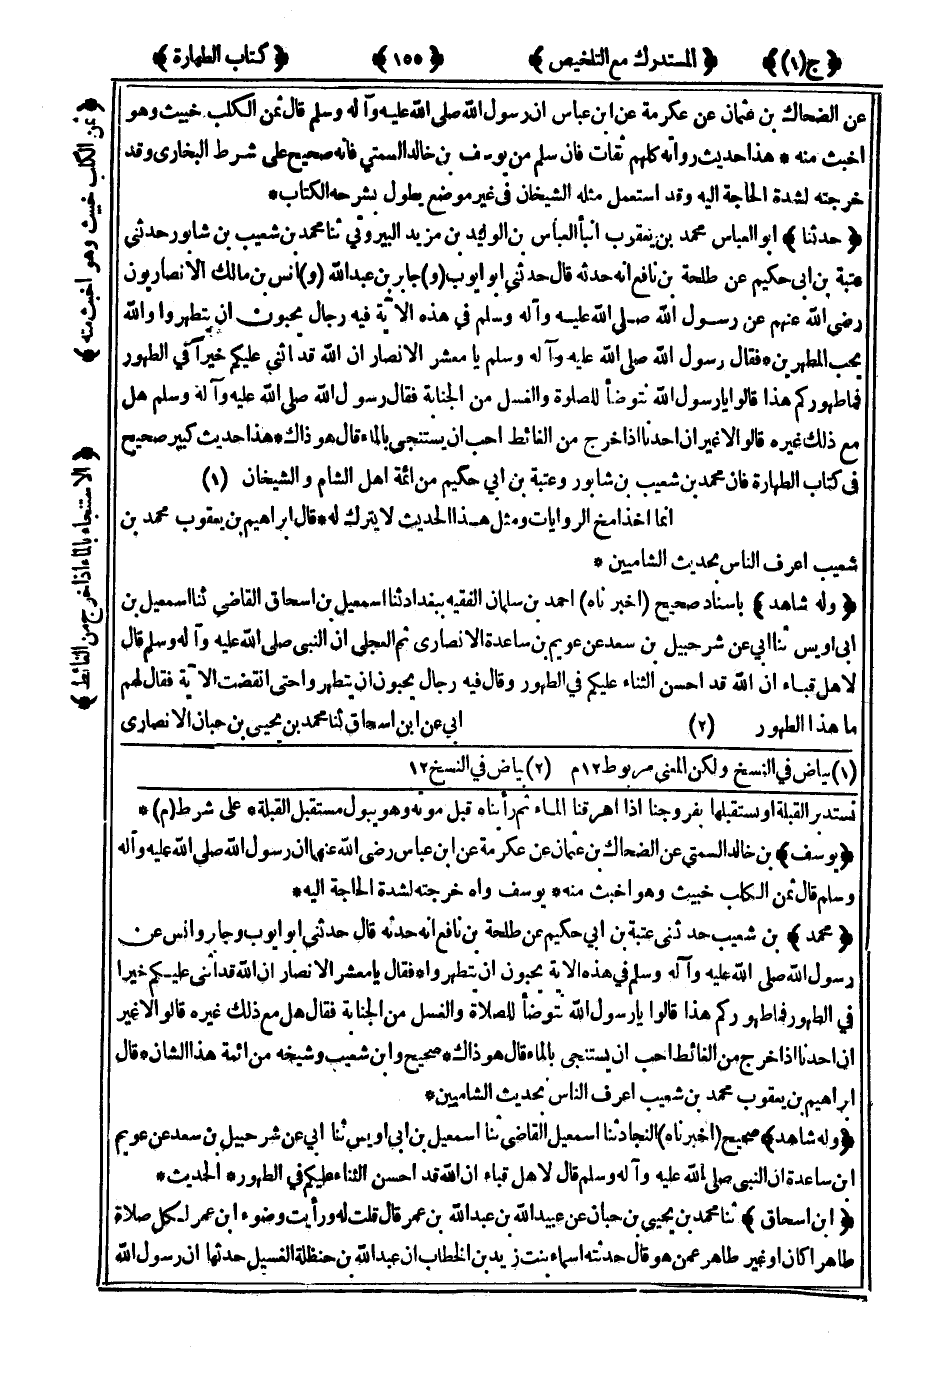 ﴿ ج (١) ﴾ ﴿ المستدرك مع التلخيص ﴾ ﴿ ١٥٥ ﴾ ﴿ كتاب الطهارة ﴾
عن الضحاك بن عثمان عن عكرمة عن ابن عباس ان رسول الله صلى الله عليه وآله وسلم قال ثمن الكلب خبيث وهو
اخبث منه * هذا حديث رواته كلهم ثقات فان سلم من يوسف بن خالد السمتي فانه صحيح على شرط البخارى وقد
خرجته لشدة الحاجة اليه وقد استعمل مثله الشيخان في غير موضع يطول بشرحه الكتاب *
﴿ حدثنا ﴾ ابو العباس محمد بن يعقوب انبأ العباس بن الوليد بن مزيد البيروتي ثنا محمد بن شعيب بن شابور حدثني
عتبة بن ابى حكيم عن طلحة بن نافع انه حدثه قال حدثني ابو ايوب (و) جابر بن عبد الله (و) انس بن مالك الانصاريون
رضى الله عنهم عن رسول الله صلى الله عليه وآله وسلم في هذه الآية فيه رجال يحبون ان يتطهروا والله
يحب المطهرين * فقال رسول الله صلى الله عليه وآله وسلم يا معشر الانصار ان الله قد اثنى عليكم خيراً في الطهور
فما طهوركم هذا قالوا يا رسول الله نتوضأ للصلوة والغسل من الجنابة فقال رسول الله صلى الله عليه وآله وسلم هل
مع ذلك غيره قالوا لا غير ان احدنا اذا خرج من الغائط احب ان يستنجي بالماء قال هو ذاك * هذا حديث كبير صحيح
فى كتاب الطهارة فان محمد بن شعيب بن شابور وعتبة بن ابي حكيم من ائمة اهل الشام والشيخان (١)
انما اخذا مخ الروايات ومثل هذا الحديث لا يترك له * قال ابراهيم بن يعقوب محمد بن
شعيب اعرف الناس بحديث الشاميين *
﴿ وله شاهد ﴾ باسناد صحيح (اخبرناه) احمد بن سلمان الفقيه ببغداد ثنا اسمعيل بن اسحاق القاضي ثنا اسمعيل بن
ابى اويس ثنا ابي عن شرحبيل بن سعد عن عويم بن ساعدة الانصارى ثم العجلى ان النبى صلى الله عليه وآله وسلم قال
لاهل قباء ان الله قد احسن الثناء عليكم في الطهور وقال فيه رجال يحبون ان يتطهروا حتى انقضت الآية فقال لهم
ما هذا الطهور (٢) ابى عن ابن اسحاق ثنا محمد بن يحيى بن حبان الانصارى
(١) بياض في النسخ ولكن المعنى مربوط ١٢ م (٢) بياض في النسخ ١٢
نستدبر القبلة او نستقبلها بفروجنا اذا اهرقنا الماء ثم رأيناه قبل موته وهو يبول مستقبل القبلة * على شرط (م) *
﴿ يوسف ﴾ بن خالد السمتي عن الضحاك بن عثمان عن عكرمة عن ابن عباس رضى الله عنهما ان رسول الله صلى الله عليه وآله
وسلم قال ثمن الكلب خبيث وهو اخبث منه * يوسف واه خرجته لشدة الحاجة اليه *
﴿ محمد ﴾ بن شعيب حدثنى عتبة بن ابي حكيم عن طلحة بن نافع انه حدثه قال حدثني ابو ايوب وجابر وانس عن
رسول الله صلى الله عليه وآله وسلم في هذه الآية يحبون ان يتطهروا * فقال يا معشر الانصار ان الله قد اثنى عليكم خيرا
في الطهور فما طهوركم هذا قالوا يا رسول الله نتوضأ للصلاة والغسل من الجنابة فقال هل مع ذلك غيره قالوا لا غير
ان احدنا اذا خرج من الغائط احب ان يستنجى بالماء قال هو ذاك * صحيح وابن شعيب وشيخه من ائمة هذا الشان * قال
ابراهيم بن يعقوب محمد بن شعيب اعرف الناس بحديث الشاميين *
﴿ وله شاهد ﴾ صحيح (اخبرناه) النجاد ثنا اسمعيل القاضي ثنا اسمعيل بن ابى اويس ثنا ابي عن شرحبيل بن سعد عن عويم
ابن ساعدة ان النبى صلى الله عليه وآله وسلم قال لاهل قباء ان الله قد احسن الثناء عليكم في الطهور * الحديث *
﴿ ابن اسحاق ﴾ ثنا محمد بن يحيى بن حبان عن عبيد الله بن عبد الله بن عمر قال قلت له ورأيت وضوء ابن عمر لكل صلاة
طاهرا كان او غير طاهر عمن هو قال حدثته اسماء بنت زيد بن الخطاب ان عبد الله بن حنظلة الغسيل حدثها ان رسول الله
﴿ ثمن الكلب خبيث وهو اخبث منه ﴾
﴿ الاستنجاء بالماء اذا خرج من الغائط ﴾